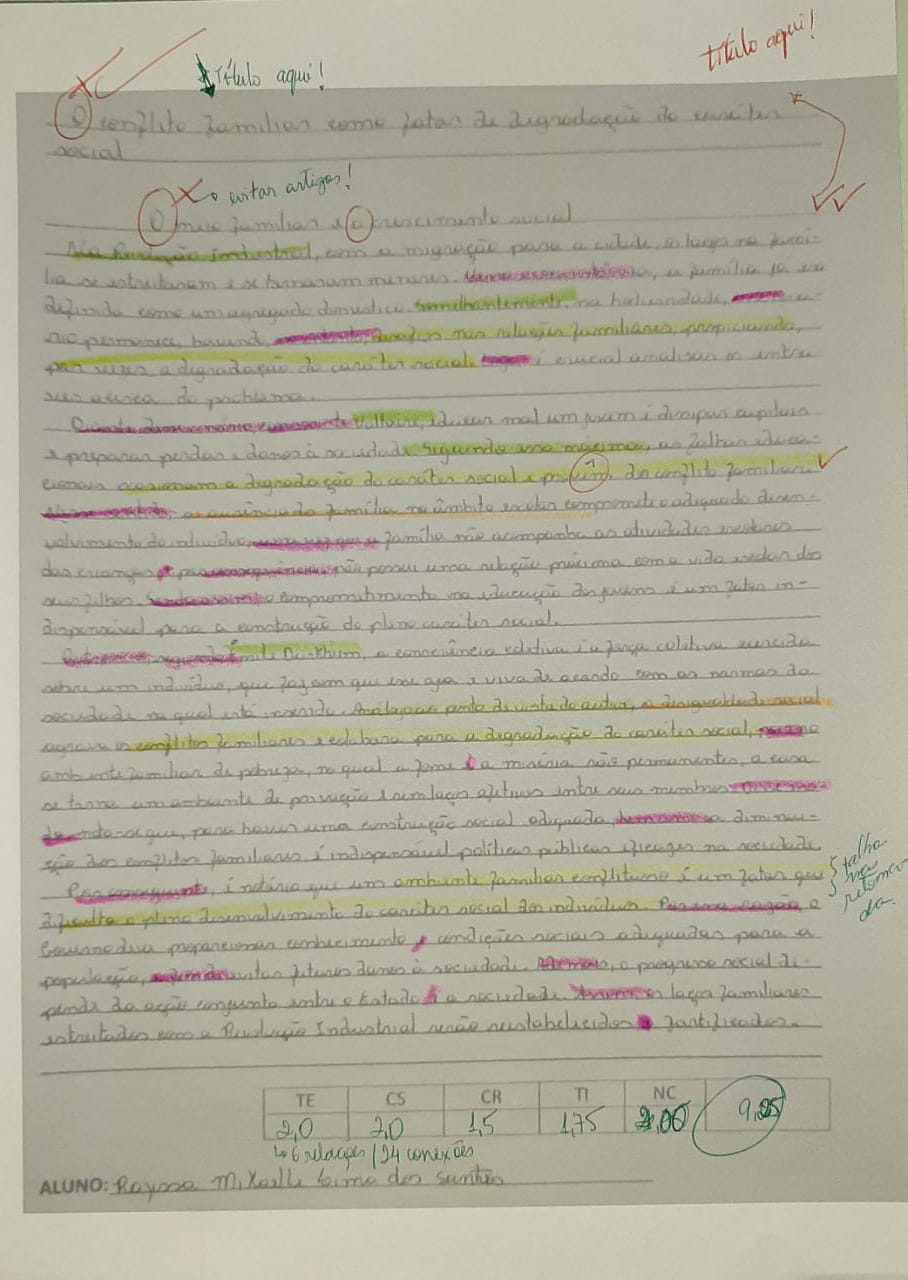 título aqui!
Título aqui!
O conflito familiar como fator de degradação do caráter
social
evitar artigos!
O meio familiar e o crescimento social
Na Revolução Industrial, com a migração para a cidade, os laços na famí-
lia se estreitaram e se tornaram menores. a família já era
definida como um agregado doméstico. Semelhantemente, na hodiernidade,
permanece, havendo, desafios nas relações familiares, propiciando,
por vezes, a degradação do caráter social. é crucial analisar os entra-
ves acerca do problema.
Voltaire, educar mal um jovem é dissipar capitais
e preparar perdas e danos à sociedade. Seguindo essa máxima, as falhas educa-
cionais ocasionam a degradação do caráter social e do conflito familiar.
a ausência da família no âmbito escolar compromete o adequado desen-
volvimento do indivíduo, uma vez que a família não acompanha as atividades escolares
das crianças e por consequência não possui uma relação próxima com a vida escolar dos
seus filhos. Sendo assim, o comprometimento na educação dos jovens é um fator in-
dispensável para a construção do pleno caráter social.
Outrossim, segundo Émile Durkheim, a consciência coletiva é a força coletiva exercida
sobre um indivíduo, que faz com que esse aja e viva de acordo com as normas da
sociedade na qual está inserido. Análogo ao ponto de vista do autor, a desigualdade social
agrava os conflitos familiares e colabora para a degradação do caráter social, pois no
ambiente familiar de pobreza, no qual a fome e a miséria são permanentes, a casa
se torna um ambiente de privação e sem laços afetivos entre seus membros.
de que, para haver uma construção social adequada, bem como a diminui-
ção dos conflitos familiares é indispensável políticas públicas eficazes na sociedade.
Por conseguinte, é notório que um ambiente familiar conflituoso é um fator que
dificulta o pleno desenvolvimento do caráter social dos indivíduos. Por essa razão, o
Governo deve proporcionar conhecimento e condições sociais adequadas para a
população, a fim de evitar futuros danos à sociedade. Ademais, o progresso social de-
pende da ação conjunta entre o Estado e a sociedade. Assim, os laços familiares
estreitados com a Revolução Industrial serão reestabelecidos e fortificados.
falha
na
retoma-
da.
TE CS CR TI NC
2,0 2,0 1,5 1,75
↳ 6 relações / 24 conexões
ALUNO: Rayssa Mikaelle Lima dos Santos